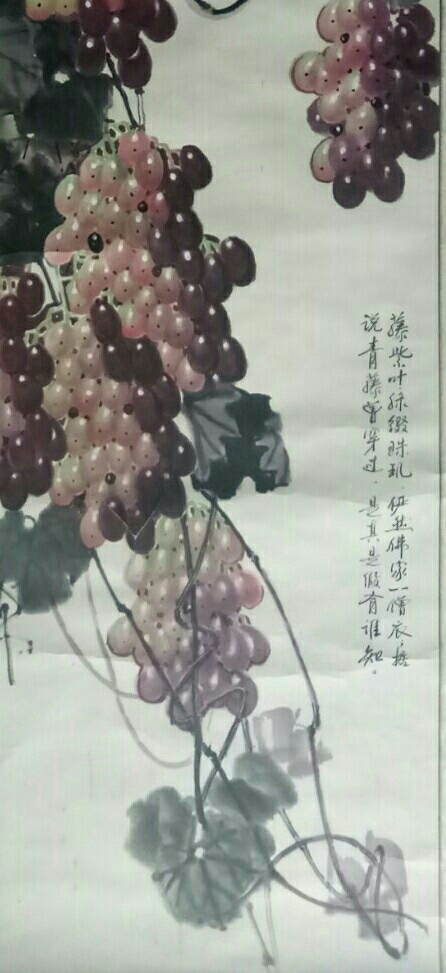 藤紫叶绿缀珠玑，伍然佛家一僧衣，据
说青藤曾穿过，是真是假有谁知。